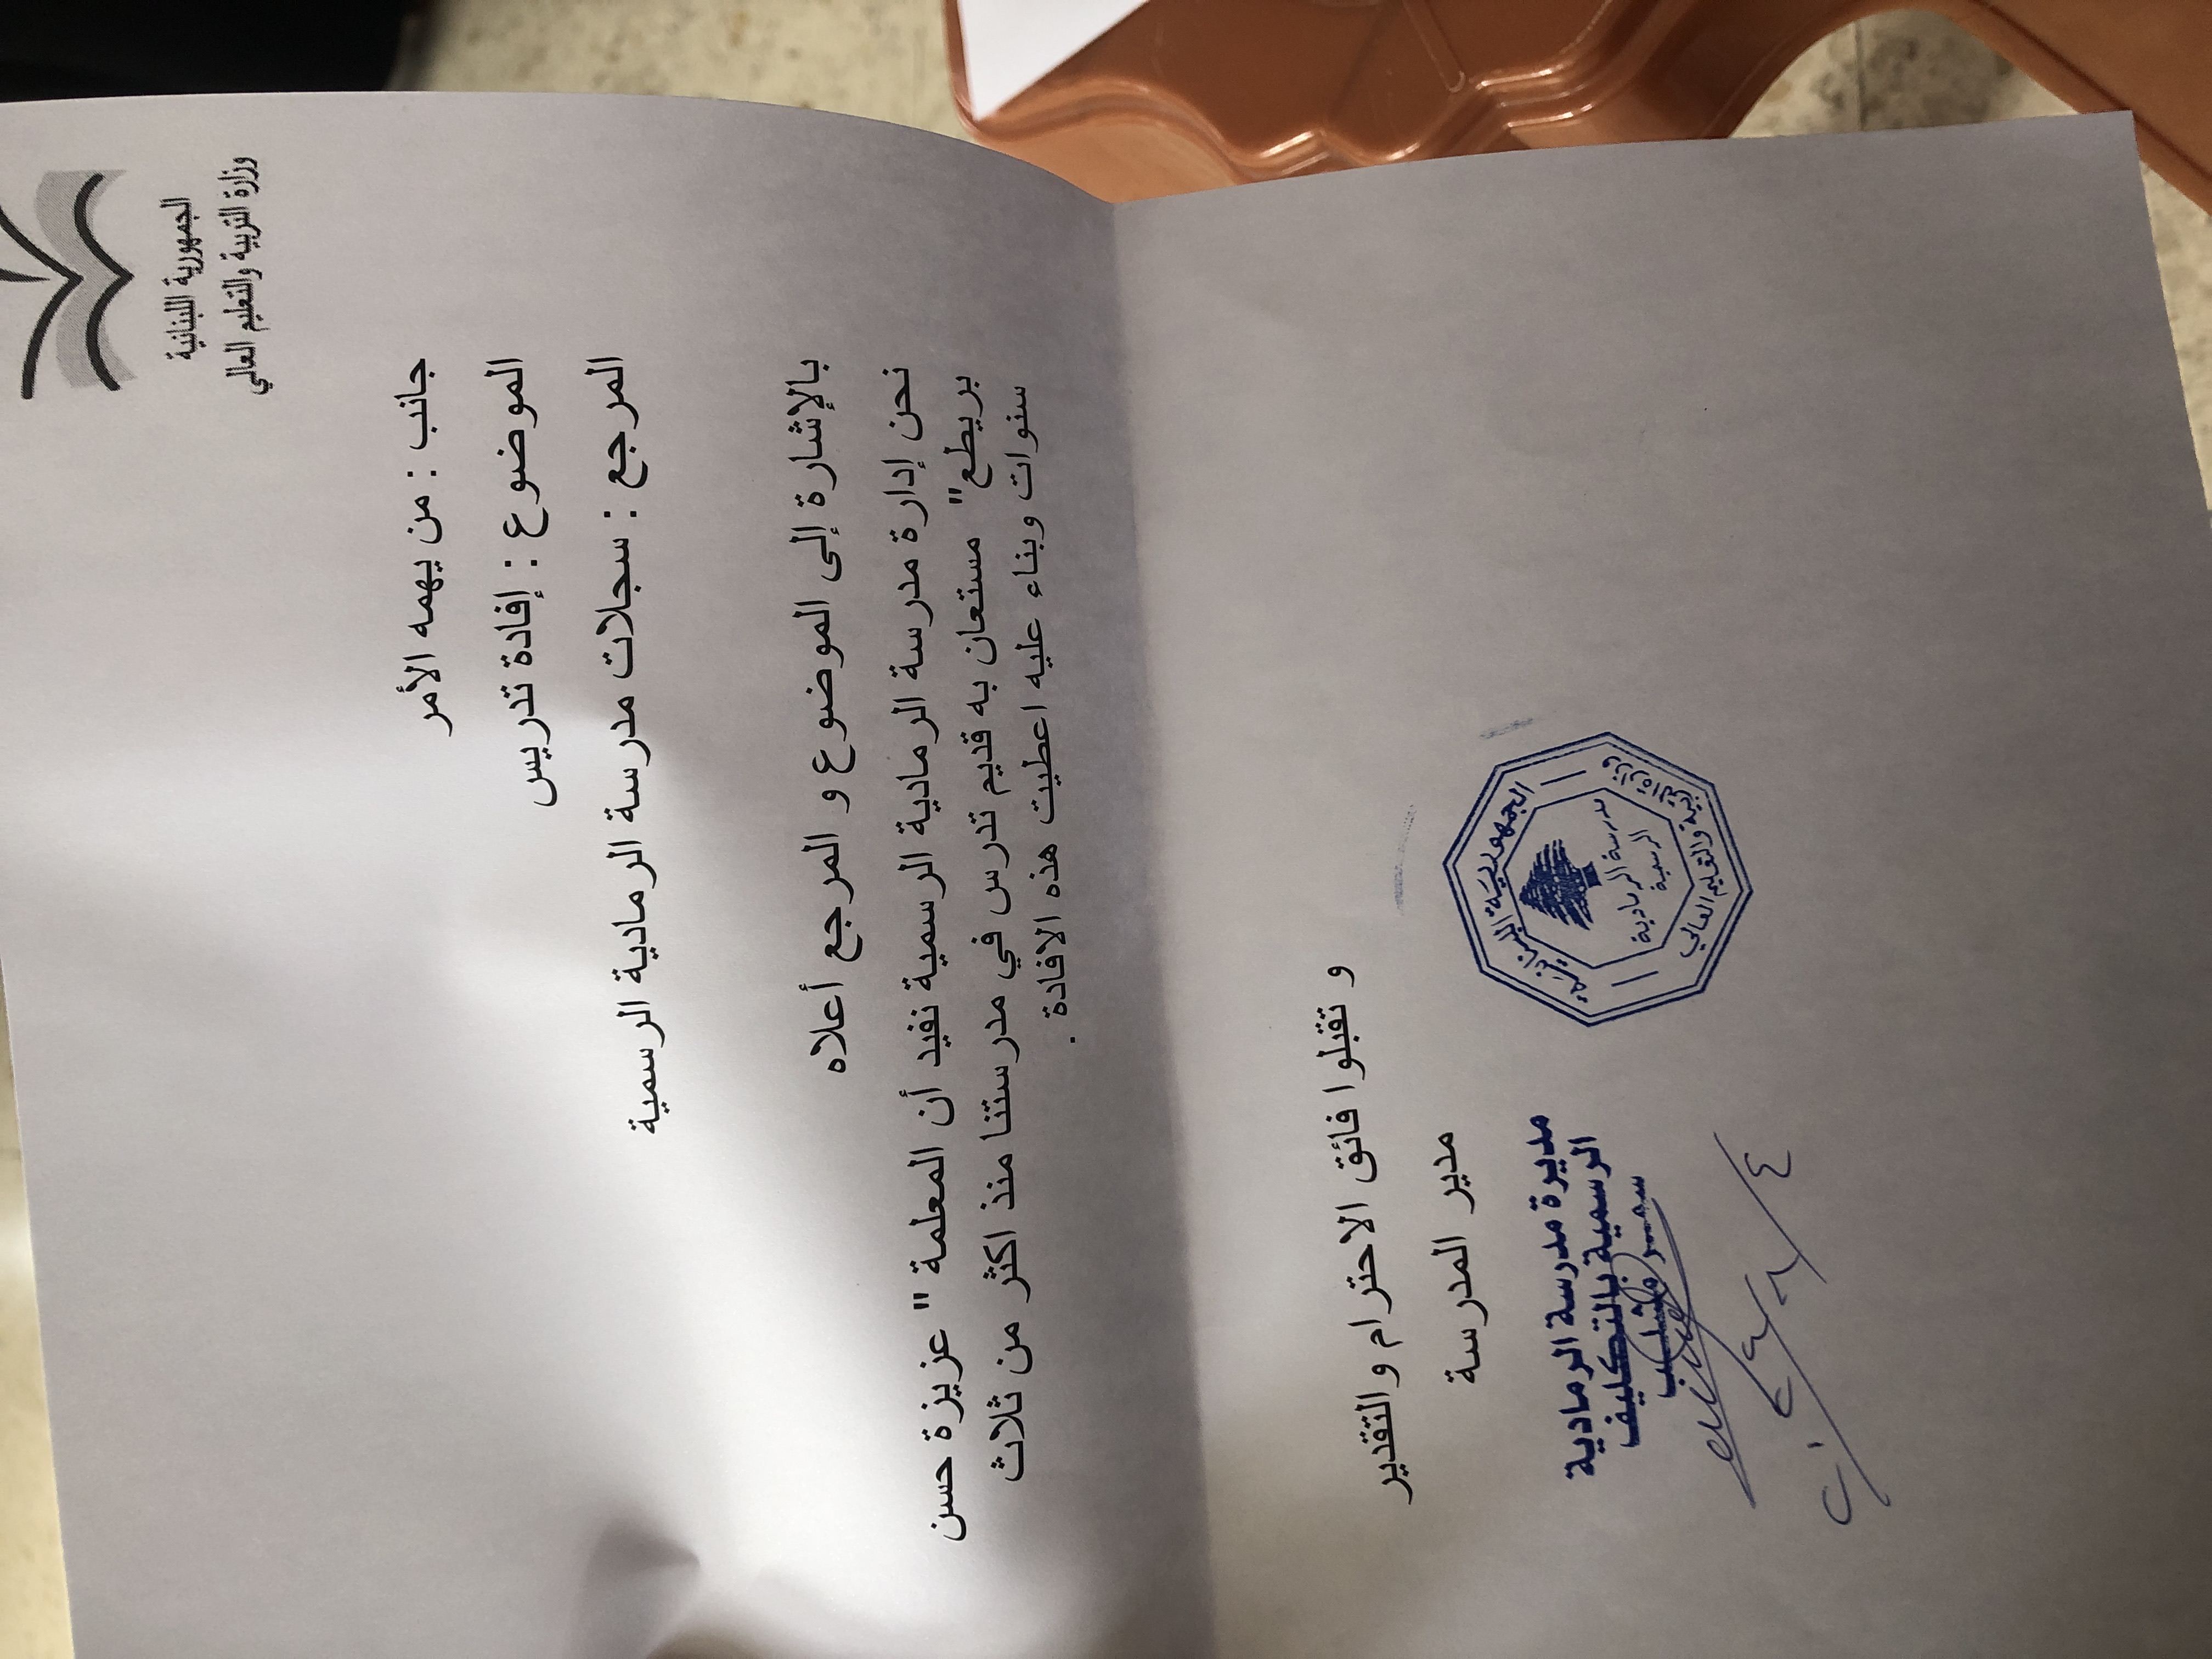 الجمهورية اللبنانية
وزارة التربية والتعليم العالي
جانب : من يهمه الأمر
الموضوع : إفادة تدريس
المرجع : سجلات مدرسة الرمادية الرسمية
بالإشارة إلى الموضوع و المرجع أعلاه
نحن إدارة مدرسة الرمادية الرسمية نفيد أن المعلمة " عزيزة حسن
بريطع" مستعان به قديم تدرس في مدرستنا منذ اكثر من ثلاث
سنوات وبناء عليه اعطيت هذه الافادة .
و تقبلوا فائق الاحترام و التقدير
مدير المدرسة
الجمهورية اللبنانية
مدرسة الرمادية
الرسمية
وزارة التربية والتعليم العالي
مديرة مدرسة الرمادية
الرسمية بالتكليف
سمر